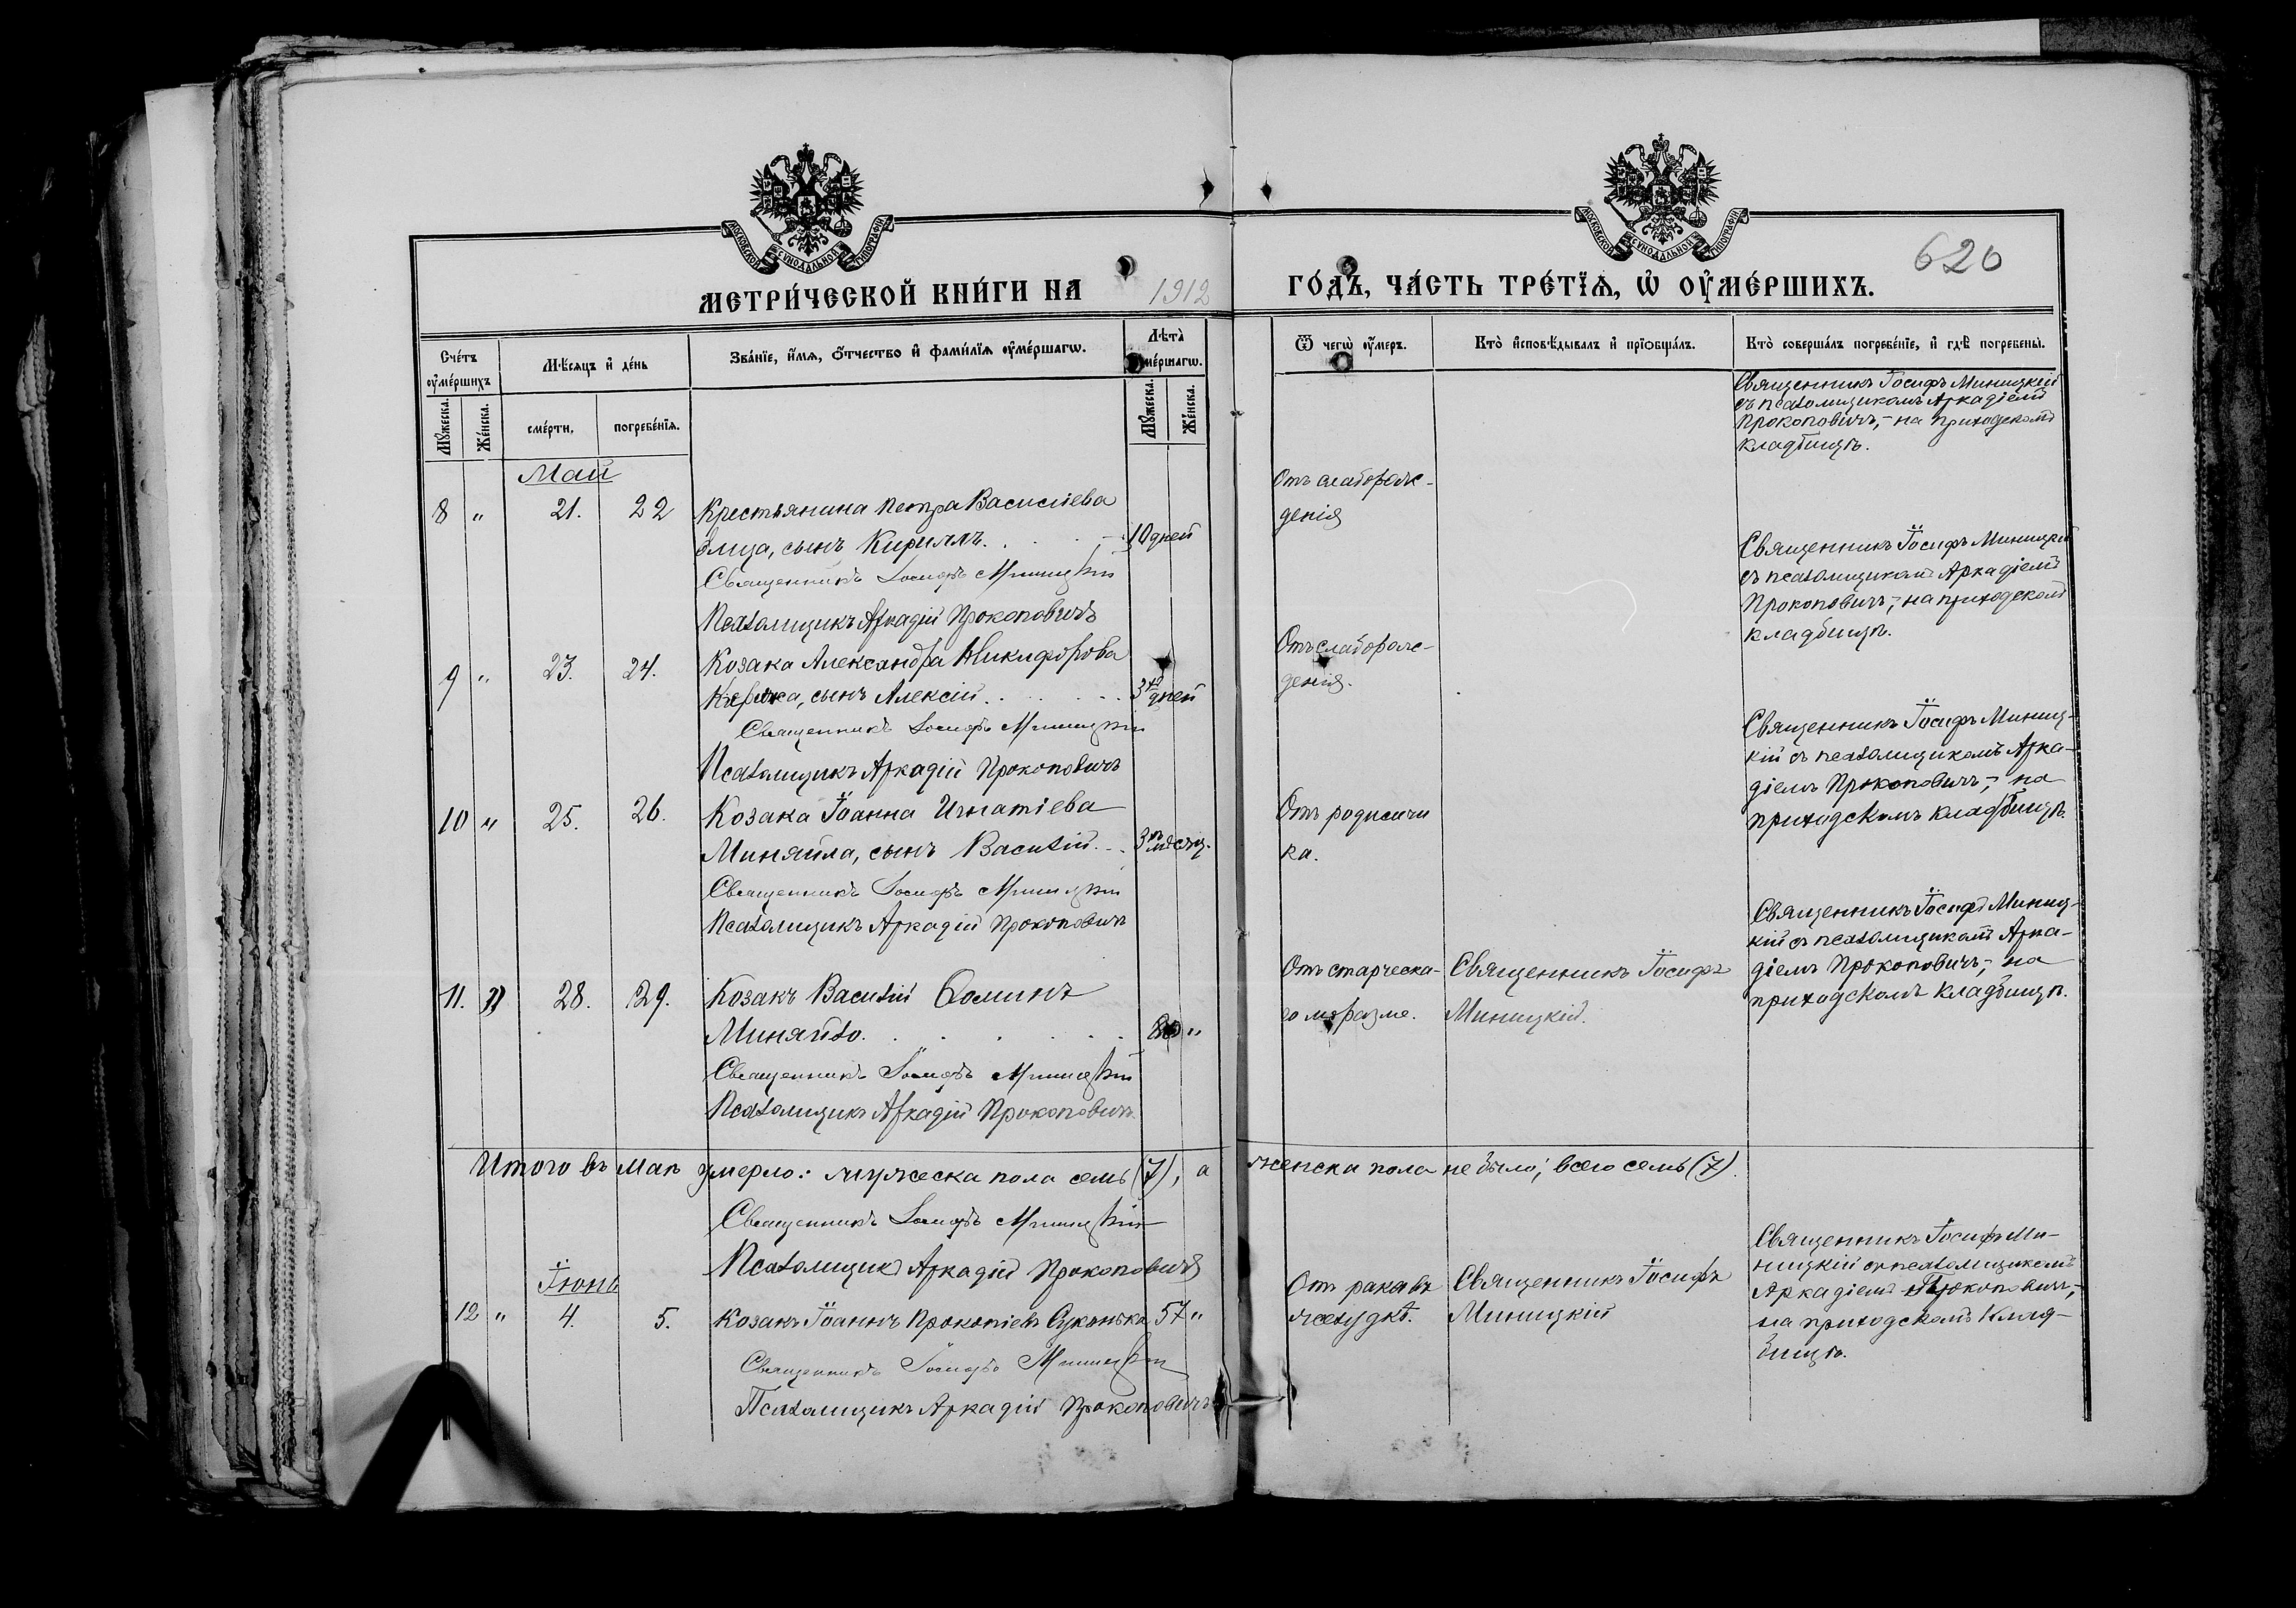 МОСКОВСКОЙ СѴНОДАЛЬНОЙ ТИПОГРАФІИ
МОСКОВСКОЙ СѴНОДАЛЬНОЙ ТИПОГРАФІИ
620
МЕТРИ́ЧЕСКОЙ КНИ́ГИ НА 1912 ГО́ДЪ, ЧА́СТЬ ТРЕ́ТЇѦ, Ѡ҆ ОУ҆МЕ́РШИХЪ.
Сче́тъ оу҆ме́ршихъ
Мѹ́жеска.
Же́нска.
Мѣ́сѧцъ и҆ де́нь
сме́рти.
погребе́нїѧ.
Зва́нїе, и҆́мѧ, ѻ҆́тчество и҆ фами́лїѧ оу҆ме́ршагѡ.
Лѣта̀ оу҆ме́ршагѡ.
Мѹ́жеска.
Же́нска.
Ѿ чегѡ̀ оу҆́меръ.
Кто̀ и҆сповѣ́дывалъ и҆ прїѻбща́лъ.
Кто̀ соверша́лъ погребе́нїе, и҆ гдѣ̀ погребены̀.
Священникъ Іосифъ Миницкій
съ псаломщикомъ Аркадіемъ
Прокоповичъ,- на приходскомъ
кладбищѣ.
Май
8 " 21. 22 Крестьянина Петра Василіева
сынъ Кирилль. 10 дней
Священникъ Іосифъ Миницкій
Псаломщикъ Аркадій Прокоповичъ
Отъ слаборож-
денія
Священникъ Іосифъ Миницкій
съ псаломщикомъ Аркадіемъ
Прокоповичъ,- на приходскомъ
кладбищѣ.
9 " 23. 24. Козака Александра Никифорова
сынъ Алексій. 3 дней
Священникъ Іосифъ Миницкій
Псаломщикъ Аркадій Прокоповичъ
Отъ слаборож-
денія.
Священникъ Іосифъ Миниц-
кій съ псаломщикомъ Арка-
діемъ Прокоповичъ,- на
приходскомъ кладбищѣ.
10 " 25. 26. Козака Іоанна Игнатіева
Миняйла, сынъ Василій. 3 мѣсяц.
Священникъ Іосифъ Миницкій
Псаломщикъ Аркадій Прокоповичъ
Отъ родимчи
ка.
Священникъ Іосифъ Миниц-
кій съ псаломщикомъ Арка-
діемъ Прокоповичъ,- на
приходскомъ кладбищѣ.
11. " 28. 29. Козакъ Василій Ѳоминъ
Миняйло. "
Священникъ Іосифъ Миницкій
Псаломщикъ Аркадій Прокоповичъ.
Отъ старческа-
го моразме.
Священникъ Іосифъ
Миницкій.
Итого въ маѣ умерло: мужеска пола семь (7), а женска пола не было; всего семь (7).
Священникъ Іосифъ Миницкій
Псаломщикъ Аркадій Прокоповичъ
Іюнь
12 " 4. 5. Козакъ Іоаннъ Прокопіевъ 57 "
Священникъ Іосифъ Миницкій
Псаломщикъ Аркадій Прокоповичъ
Отъ рака въ
желудкѣ.
Священникъ Іосифъ
Миницкій
Священникъ Іосифъ Ми-
ницкій съ псаломщикомъ
Аркадіемъ Прокоповичъ,-
на приходскомъ клад-
бищѣ.